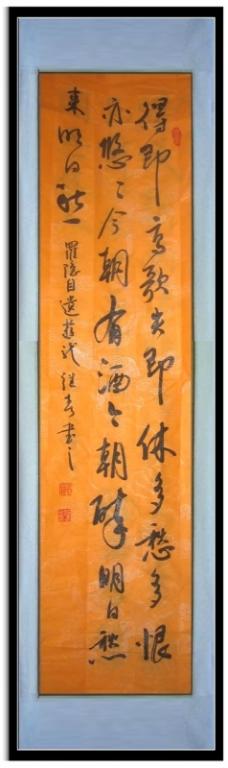 得即高歌失即休多愁多恨
亦悠々今朝有酒今朝醉明日愁
來明日愁 羅隐自遣 書之